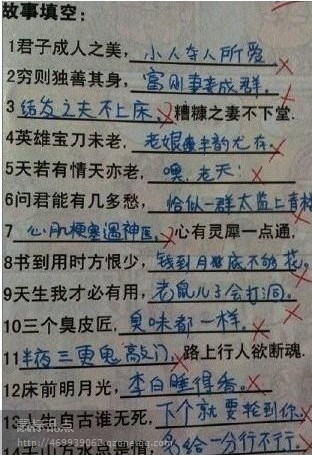 故事填空:
1君子成人之美,小人夺人所爱
2穷则独善其身,富则妻妾成群。
3结发之夫不上床,糟糠之妻不下堂.
4英雄宝刀未老,老娘风韵尤存。
5天若有情天亦老,噢,老天!
6问君能有几多愁,恰似一群太监上青楼
7心肌梗塞遇神医,心有灵犀一点通,
8书到用时方恨少,钱到月底不够花。
9天生我才必有用,老鼠儿子会打洞。
10三个臭皮匠,臭味都一样。
11半夜三更鬼敲门,路上行人欲断魂.
12床前明月光,李白睡得香。
13人生自古谁无死,下个就要轮到你。
14千山万水总是情,多给一分行不行。